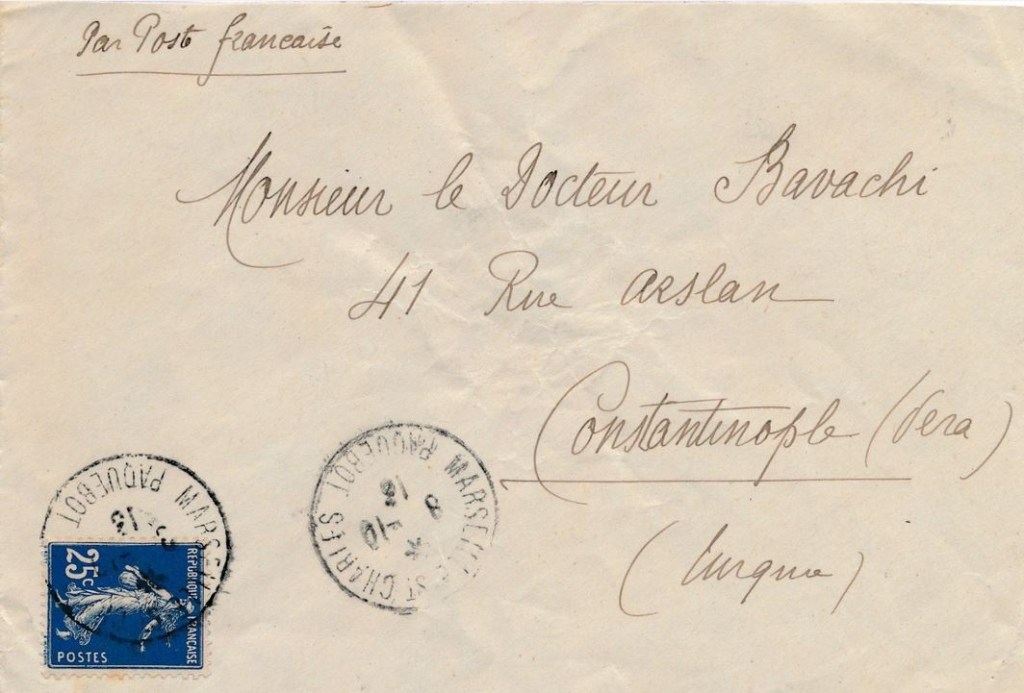 Par Post française
Monsieur le Docteur Bavachi
41 Rue Arslan
Constantinople (Pera)
(Turquie)
MARSEILLE ST CHARLES PAQUEBOT
* 8 -10 13
MARSEILLE
PAQUEBOT
13
25c
REPUBLIQUE FRANCAISE
POSTES